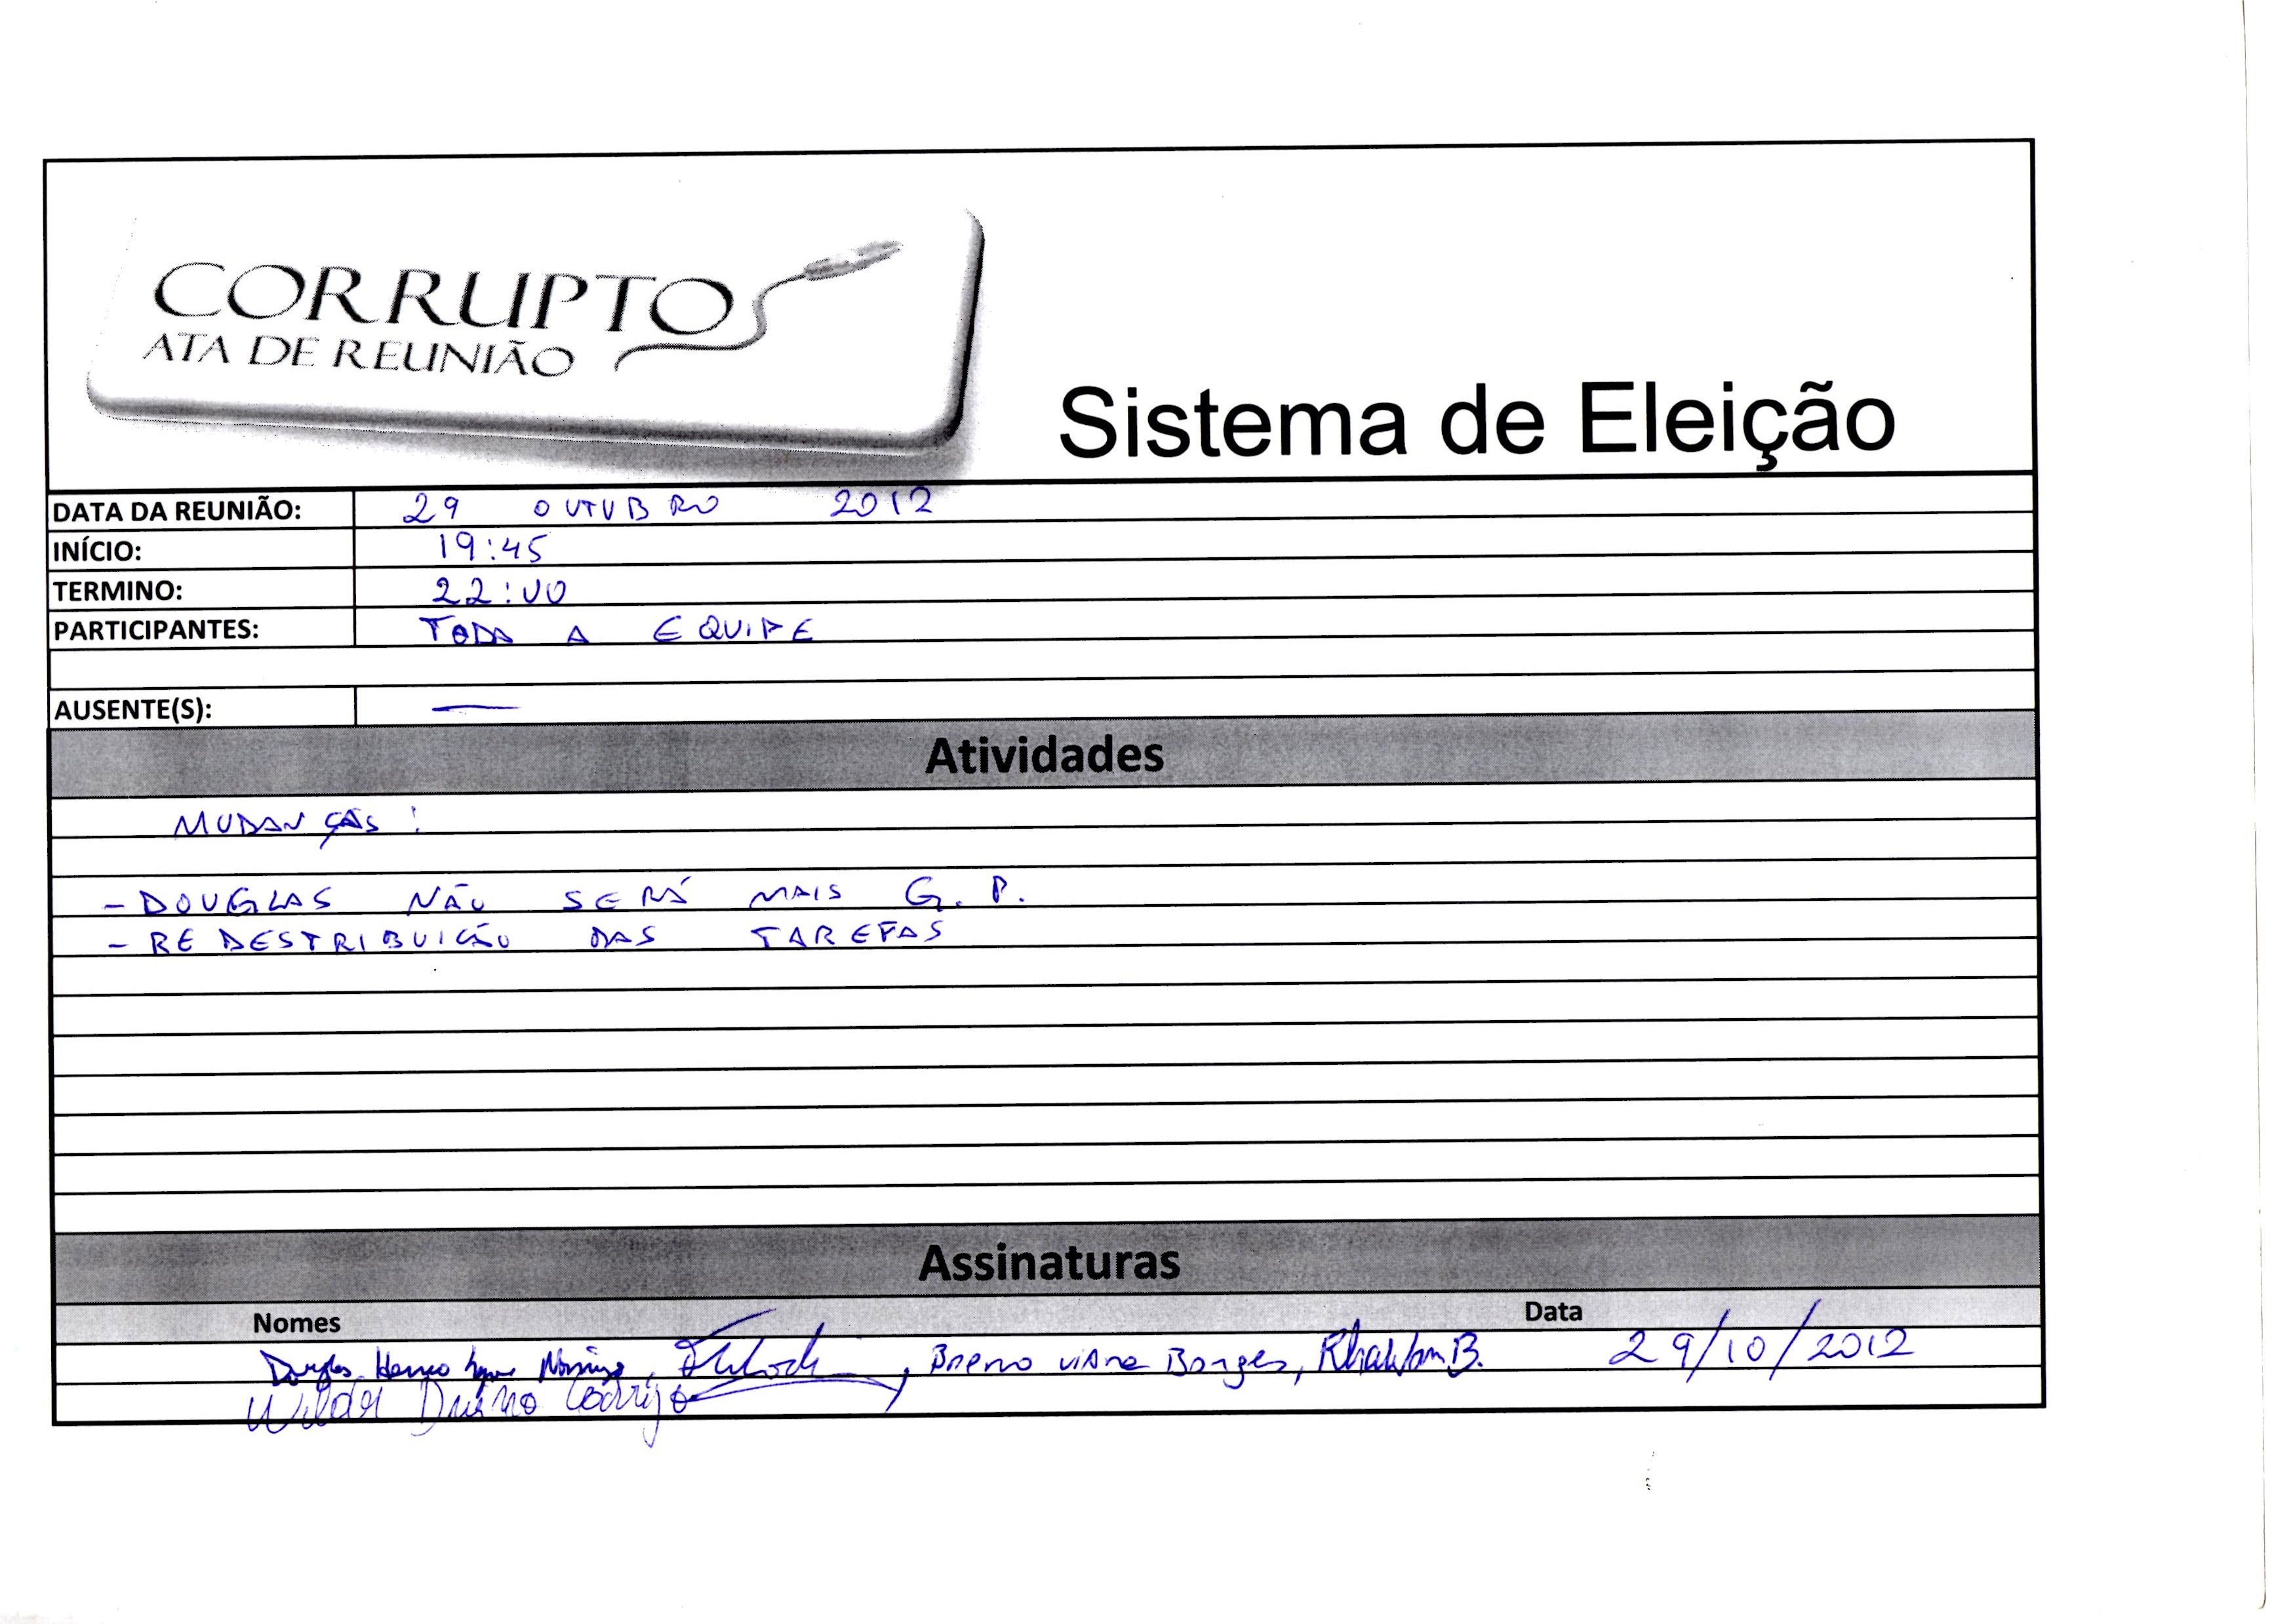 CORRUPTOS
ATA DE REUNIÃO
Sistema de Eleição
DATA DA REUNIÃO: 29 OUTUBRO 2012
INÍCIO: 19:45
TERMINO: 22:00
PARTICIPANTES: TODA A EQUIPE
AUSENTE(S): —
Atividades
MUDANÇAS:
- DOUGLAS NÃO SERÁ MAIS G. P.
- REDESTRIBUIÇÃO DAS TAREFAS
Assinaturas
Nomes Data
Douglas, Breno Viana Borges, B. 29/10/2012